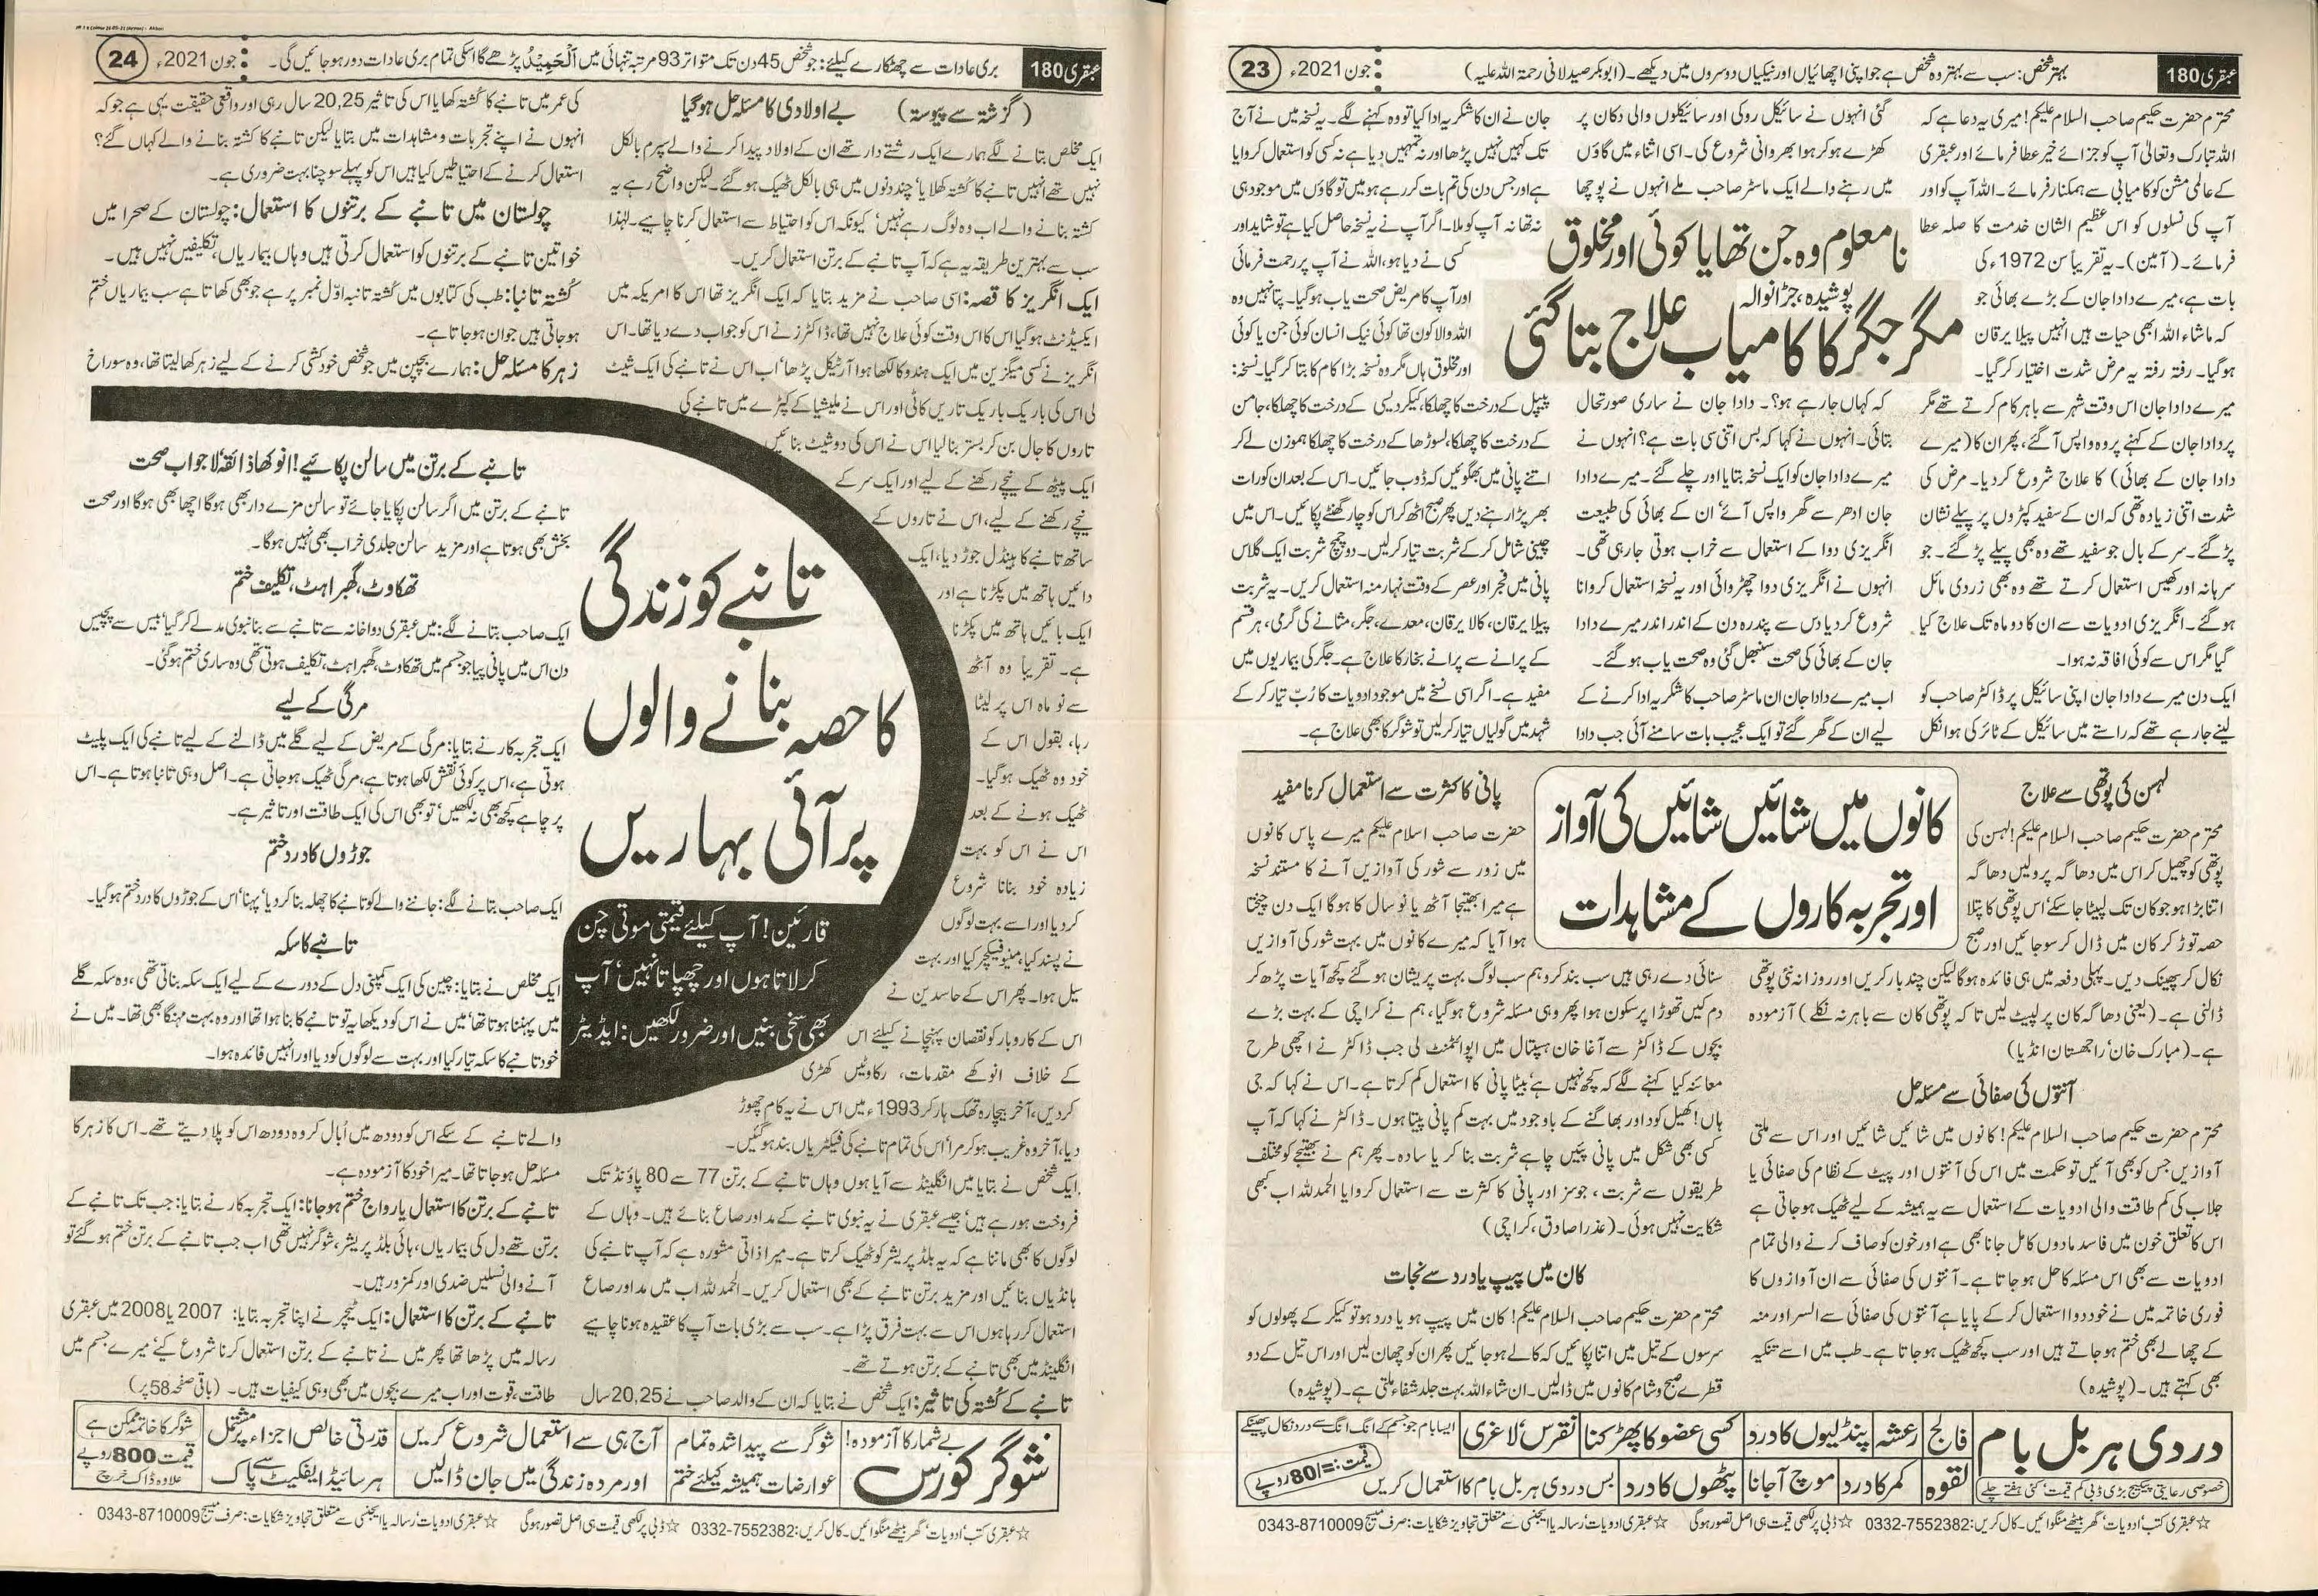 عبقری 180
بہتر شخص: سب سے بہتر وہ شخص ہے جو اپنی اچھائیاں اور نیکیاں دوسروں میں دیکھے۔ (ابوبکر صیدلانی رحمۃ اللہ علیہ)
جون 2021ء
23
نامعلوم وہ جن تھا یا کوئی اور مخلوق
پوشیدہ، جڑانوالہ
مگر جگر کا کامیاب علاج بتا گئی
محترم حضرت حکیم صاحب السلام علیکم! میری یہ دعا ہے کہ
اللہ تبارک وتعالیٰ آپ کو جزائے خیر عطا فرمائے اور عبقری
کے عالمی مشن کو کامیابی سے ہمکنار فرمائے۔ اللہ آپ کو اور
آپ کی نسلوں کو اس عظیم الشان خدمت کا صلہ عطا
فرمائے۔ (آمین)۔ یہ تقریباً سن 1972ء کی
بات ہے، میرے دادا جان کے بڑے بھائی جو
کہ ماشاء اللہ ابھی حیات ہیں انہیں پیلا یرقان
ہوگیا۔ رفتہ رفتہ یہ مرض شدت اختیار کر گیا۔
میرے دادا جان اس وقت شہر سے باہر کام کرتے تھے مگر
پردادا جان کے کہنے پر وہ واپس آگئے، پھر ان کا (میرے
دادا جان کے بھائی) کا علاج شروع کردیا۔ مرض کی
شدت اتنی زیادہ تھی کہ ان کے سفید کپڑوں پر پیلے نشان
پڑ گئے۔ سر کے بال جو سفید تھے وہ بھی پیلے پڑ گئے۔ جو
سرہانہ اور کھیس استعمال کرتے تھے وہ بھی زردی مائل
ہوگئے۔ انگریزی ادویات سے ان کا دو ماہ تک علاج کیا
گیا مگر اس سے کوئی افاقہ نہ ہوا۔
ایک دن میرے دادا جان اپنی سائیکل پر ڈاکٹر صاحب کو
لینے جارہے تھے کہ راستے میں سائیکل کے ٹائر کی ہوا نکل
گئی انہوں نے سائیکل روکی اور سائیکلوں والی دکان پر
کھڑے ہوکر ہوا بھروانی شروع کی۔ اسی اثناء میں گاؤں
میں رہنے والے ایک ماسٹر صاحب ملے انہوں نے پوچھا
کہ کہاں جارہے ہو؟۔ دادا جان نے ساری صورتحال
بتائی۔ انہوں نے کہا کہ بس اتنی سی بات ہے؟ انہوں نے
میرے دادا جان کو ایک نسخہ بتایا اور چلے گئے۔ میرے دادا
جان ادھر سے گھر واپس آئے‘ ان کے بھائی کی طبیعت
انگریزی دوا کے استعمال سے خراب ہوتی جارہی تھی۔
انہوں نے انگریزی دوا چھڑوائی اور یہ نسخہ استعمال کروانا
شروع کردیا دس سے پندرہ دن کے اندر اندر میرے دادا
جان کے بھائی کی صحت سنبھل گئی وہ صحت یاب ہوگئے۔
اب میرے دادا جان ان ماسٹر صاحب کا شکریہ ادا کرنے کے
لیے ان کے گھر گئے تو ایک عجیب بات سامنے آئی جب دادا
جان نے ان کا شکریہ ادا کیا تو وہ کہنے لگے۔ یہ نسخہ میں نے آج
تک کہیں نہیں پڑھا اور نہ تمہیں دیا ہے نہ کسی کو استعمال کروایا
ہے اور جس دن کی تم بات کررہے ہو میں تو گاؤں میں موجود ہی
نہ تھا نہ آپ کو ملا۔ اگر آپ نے یہ نسخہ حاصل کیا ہے تو شاید اور
کسی نے دیا ہو، اللہ نے آپ پر رحمت فرمائی
اور آپ کا مریض صحت یاب ہوگیا۔ پتا نہیں وہ
اللہ والا کون تھا کوئی نیک انسان کوئی جن یا کوئی
اور مخلوق ہاں مگر وہ نسخہ بڑا کام کا بتا کر گیا۔ نسخہ:
پیپل کے درخت کا چھلکا، کیکر دیسی کے درخت کا چھلکا، جامن
کے درخت کا چھلکا، لسوڑھا کے درخت کا چھلکا ہموزن لے کر
اتنے پانی میں بھگوئیں کہ ڈوب جائیں۔ اس کے بعد ان کو رات
بھر پڑا رہنے دیں پھر صبح اٹھ کر اس کو چار گھنٹے پکائیں۔ اس میں
چینی شامل کرکے شربت تیار کرلیں۔ دو چمچ شربت ایک گلاس
پانی میں فجر اور عصر کے وقت نہار منہ استعمال کریں۔ یہ شربت
پیلا یرقان، کالا یرقان، معدے، جگر، مثانے کی گرمی، ہر قسم
کے پرانے سے پرانے بخار کا علاج ہے۔ جگر کی بیماریوں میں
مفید ہے۔ اگر اسی نسخے میں موجود ادویات کا رُبّ تیار کرکے
شہد میں گولیاں تیار کرلیں تو شوگر کا بھی علاج ہے۔
کانوں میں شائیں شائیں کی آواز
اور تجربہ کاروں کے مشاہدات
لہسن کی پوتھی سے علاج
محترم حضرت حکیم صاحب السلام علیکم! لہسن کی
پوتھی کو چھیل کر اس میں دھاگہ پرولیں دھاگہ
اتنا بڑا ہو جو کان تک لپیٹا جاسکے‘ اس پوتھی کا پتلا
حصہ توڑ کر کان میں ڈال کر سوجائیں اور صبح
نکال کر پھینک دیں۔ پہلی دفعہ میں ہی فائدہ ہوگا لیکن چند بار کریں اور روزانہ نئی پوتھی
ڈالنی ہے۔ (یعنی دھاگہ کان پر لپیٹ لیں تا کہ پوتھی کان سے باہر نہ نکلے) آزمودہ
ہے۔ (مبارک خان‘ راجھستان انڈیا)
آنتوں کی صفائی سے مسئلہ حل
محترم حضرت حکیم صاحب السلام علیکم! کانوں میں شائیں شائیں اور اس سے ملتی
آوازیں جس کو بھی آئیں تو حکمت میں اس کی آنتوں اور پیٹ کے نظام کی صفائی یا
جلاب کی کم طاقت والی ادویات کے استعمال سے یہ ہمیشہ کے لیے ٹھیک ہوجاتی ہے
اس کا تعلق خون میں فاسد مادوں کا مل جانا بھی ہے اور خون کو صاف کرنے والی تمام
ادویات سے بھی اس مسئلہ کا حل ہوجاتا ہے۔ آنتوں کی صفائی سے ان آوازوں کا
فوری خاتمہ میں نے خود دوا استعمال کرکے پایا ہے آنتوں کی صفائی سے السر اور منہ
کے چھالے بھی ختم ہوجاتے ہیں اور سب کچھ ٹھیک ہوجاتا ہے۔ طب میں اسے تنکیہ
بھی کہتے ہیں۔ (پوشیدہ)
پانی کا کثرت سے استعمال کرنا مفید
حضرت صاحب اسلام علیکم میرے پاس کانوں
میں زور سے شور کی آوازیں آنے کا مستند نسخہ
ہے میرا بھتیجا آٹھ یا نو سال کا ہوگا ایک دن چیختا
ہوا آیا کہ میرے کانوں میں بہت شور کی آوازیں
سنائی دے رہی ہیں سب بند کرو ہم سب لوگ بہت پریشان ہوگئے کچھ آیات پڑھ کر
دم کیں تھوڑا پرسکون ہوا پھر وہی مسئلہ شروع ہوگیا، ہم نے کراچی کے بہت بڑے
بچوں کے ڈاکٹر سے آغا خان ہسپتال میں اپوائنٹمنٹ لی جب ڈاکٹر نے اچھی طرح
معائنہ کیا کہنے لگے کہ کچھ نہیں ہے‘ بیٹا پانی کا استعمال کم کرتا ہے۔ اس نے کہا کہ جی
ہاں! کھیل کود اور بھاگنے کے باوجود میں بہت کم پانی پیتا ہوں۔ ڈاکٹر نے کہا کہ آپ
کسی بھی شکل میں پانی پئیں چاہے شربت بنا کر یا سادہ۔ پھر ہم نے بھتیجے کو مختلف
طریقوں سے شربت، جوسز اور پانی کا کثرت سے استعمال کروایا الحمدللہ اب بھی
شکایت نہیں ہوئی۔ (عذرا صادق، کراچی)
کان میں پیپ یا درد سے نجات
محترم حضرت حکیم صاحب السلام علیکم! کان میں پیپ ہو یا درد ہو تو کیکر کے پھولوں کو
سرسوں کے تیل میں اتنا پکائیں کہ کالے ہوجائیں پھر ان کو چھان لیں اور اس تیل کے دو
قطرے صبح و شام کانوں میں ڈالیں۔ ان شاء اللہ بہت جلد شفاء ملتی ہے۔ (پوشیدہ)
دردی ہربل بام
خصوصی رعایتی پیکیج بڑی ڈبی کم قیمت‘ کئی ہفتے چلے
فالج
رعشہ
پنڈلیوں کا درد
کسی عضو کا پھڑکنا
نقرس‘ لاغری
ایسا بام جو جسم کے انگ انگ سے درد نکال پھینکے
لقوہ
کمر کا درد
موچ آجانا
پٹھوں کا درد
بس دردی ہربل بام کا استعمال کریں
قیمت:=/80 روپے
☆عبقری کتب‘ ادویات‘ گھر بیٹھے منگوائیں۔ کال کریں: 0332-7552382 ☆ڈبی پر لکھی قیمت ہی اصل تصور ہوگی ☆عبقری ادویات‘ رسالہ یا ایجنسی سے متعلق تجاویز شکایات: صرف میسج 0343-8710009
عبقری 180
بری عادات سے چھٹکارے کیلئے: جو شخص 45 دن تک متواتر 93 مرتبہ تنہائی میں اَلْحَمِیْدُ پڑھے گا اسکی تمام بری عادات دور ہوجائیں گی۔
جون 2021ء
24
(گزشتہ سے پیوستہ) بے اولادی کا مسئلہ حل ہوگیا
ایک مخلص بتانے لگے ہمارے ایک رشتے دار تھے ان کے اولاد پیدا کرنے والے سپرم بالکل
نہیں تھے انہیں تانبے کا کشتہ کھلایا‘ چند دنوں میں ہی بالکل ٹھیک ہوگئے۔ لیکن واضح رہے یہ
کشتہ بنانے والے اب وہ لوگ رہے نہیں‘ کیونکہ اس کو احتیاط سے استعمال کرنا چاہیے۔ لہٰذا
سب سے بہترین طریقہ یہ ہے کہ آپ تانبے کے برتن استعمال کریں۔
ایک انگریز کا قصہ: اسی صاحب نے مزید بتایا کہ ایک انگریز تھا اس کا امریکہ میں
ایکسیڈنٹ ہوگیا اس کا اس وقت کوئی علاج نہیں تھا، ڈاکٹرز نے اس کو جواب دے دیا تھا۔ اس
انگریز نے کسی میگزین میں ایک ہندو کا لکھا ہوا آرٹیکل پڑھا‘ اب اس نے تانبے کی ایک شیٹ
لی اس کی باریک باریک تاریں کاٹی اور اس نے ملیشیا کے کپڑے میں تانبے کی
تاروں کا جال بن کر بستر بنالیا اس نے اس کی دو شیٹ بنائیں
ایک پیٹھ کے نیچے رکھنے کے لیے اور ایک سر کے
نیچے رکھنے کے لیے، اس نے تاروں کے
ساتھ تانبے کا ہینڈل جوڑ دیا، ایک
دائیں ہاتھ میں پکڑنا ہے اور
ایک بائیں ہاتھ میں پکڑنا
ہے۔ تقریباً وہ آٹھ
سے نو ماہ اس پر لیٹا
رہا، بقول اس کے
خود وہ ٹھیک ہوگیا۔
ٹھیک ہونے کے بعد
اس نے اس کو بہت
زیادہ خود بنانا شروع
کردیا اور اسے بہت لوگوں
نے پسند کیا، مینوفیکچر کیا اور بہت
سیل ہوا۔ پھر اس کے حاسدین نے
اس کے کاروبار کو نقصان پہنچانے کیلئے اس
کے خلاف انوکھے مقدمات، رکاوٹیں کھڑی
کردیں، آخر بیچارہ تھک ہار کر 1993ء میں اس نے یہ کام چھوڑ
دیا، آخر وہ غریب ہوکر مرا‘ اس کی تمام تانبے کی فیکٹریاں بند ہوگئیں۔
ایک شخص نے بتایا میں انگلینڈ سے آیا ہوں وہاں تانبے کے برتن 77 سے 80 پاؤنڈ تک
فروخت ہورہے ہیں‘ جیسے عبقری نے یہ نبوی تانبے کے مد اور صاع بنائے ہیں۔ وہاں کے
لوگوں کا بھی ماننا ہے کہ یہ بلڈ پریشر کو ٹھیک کرتا ہے۔ میرا ذاتی مشورہ ہے کہ آپ تانبے کی
ہانڈیاں بنائیں اور مزید برتن تانبے کے بھی استعمال کریں۔ الحمدللہ اب میں مد اور صاع
استعمال کررہا ہوں اس سے بہت فرق پڑا ہے۔ سب سے بڑی بات آپ کا عقیدہ ہونا چاہیے
انگلینڈ میں بھی تانبے کے برتن ہوتے تھے۔
تانبے کے کشتہ کی تاثیر: ایک شخص نے بتایا کہ ان کے والد صاحب نے 20،25 سال
کی عمر میں تانبے کا کشتہ کھایا اس کی تاثیر 20,25 سال رہی اور واقعی حقیقت یہی ہے جو کہ
انہوں نے اپنے تجربات و مشاہدات میں بتایا لیکن تانبے کا کشتہ بنانے والے کہاں گئے؟
استعمال کرنے کے احتیاطیں کیا ہیں اس کو پہلے سوچنا بہت ضروری ہے۔
چولستان میں تانبے کے برتنوں کا استعمال: چولستان کے صحرا میں
خواتین تانبے کے برتنوں کو استعمال کرتی ہیں وہاں بیماریاں، تکلیفیں نہیں ہیں۔
کشتہ تانبا: طب کی کتابوں میں کشتہ تانبہ اوّل نمبر پر ہے جو بھی کھاتا ہے سب بیماریاں ختم
ہوجاتی ہیں جوان ہوجاتا ہے۔
زہر کا مسئلہ حل: ہمارے بچپن میں جو شخص خودکشی کرنے کے لیے زہر کھا لیتا تھا، وہ سوراخ
تانبے کو زندگی
کا حصہ بنانے والوں
پر آئی بہاریں
قارئین! آپ کیلئے قیمتی موتی چن
کر لاتا ہوں اور چھپاتا نہیں‘ آپ
بھی سخی بنیں اور ضرور لکھیں: ایڈیٹر
تانبے کے برتن میں سالن پکائیے! انوکھا ذائقہ‘ لاجواب صحت
تانبے کے برتن میں اگر سالن پکایا جائے تو سالن مزے دار بھی ہوگا اچھا بھی ہوگا اور صحت
بخش بھی ہوتا ہے اور مزید سالن جلدی خراب بھی نہیں ہوگا۔
تھکاوٹ، گھبراہٹ، تکلیف ختم
ایک صاحب بتانے لگے: میں عبقری دواخانہ سے تانبے سے بنا نبوی مد لے کر گیا‘ بیس سے پچیس
دن اس میں پانی پیا جو جسم میں تھکاوٹ، گھبراہٹ، تکلیف ہوتی تھی وہ ساری ختم ہوگئی۔
مرگی کے لیے
ایک تجربہ کار نے بتایا: مرگی کے مریض کے لیے گلے میں ڈالنے کے لیے تانبے کی ایک پلیٹ
ہوتی ہے، اس پر کوئی نقش لکھا ہوتا ہے، مرگی ٹھیک ہوجاتی ہے۔ اصل وہی تانبا ہوتا ہے۔ اس
پر چاہے کچھ بھی نہ لکھیں‘ تو بھی اس کی ایک طاقت اور تاثیر ہے۔
جوڑوں کا درد ختم
ایک صاحب بتانے لگے: جاننے والے کو تانبے کا چھلہ بنا کر دیا‘ پہنا‘ اس کے جوڑوں کا درد ختم ہوگیا۔
تانبے کا سکہ
ایک مخلص نے بتایا: چین کی ایک کمپنی دل کے دورے کے لیے ایک سکہ بناتی تھی، وہ سکہ گلے
میں پہننا ہوتا تھا‘ میں نے اس کو دیکھا یہ تو تانبے کا بنا ہوا تھا اور وہ بہت مہنگا بھی تھا۔ میں نے
خود تانبے کا سکہ تیار کیا اور بہت سے لوگوں کو دیا اور انہیں فائدہ ہوا۔
والے تانبے کے سکے اس کو دودھ میں اُبال کر وہ دودھ اس کو پلا دیتے تھے۔ اس کا زہر کا
مسئلہ حل ہوجاتا تھا۔ میرا خود کا آزمودہ ہے۔
تانبے کے برتن کا استعمال یا رواج ختم ہوجانا: ایک تجربہ کار نے بتایا: جب تک تانبے کے
برتن تھے دل کی بیماریاں، ہائی بلڈ پریشر، شوگر نہیں تھی اب جب تانبے کے برتن ختم ہوگئے تو
آنے والی نسلیں ضدی اور کمزور ہیں۔
تانبے کے برتن کا استعمال: ایک ٹیچر نے اپنا تجربہ بتایا: 2007 یا 2008 میں عبقری
رسالہ میں پڑھا تھا پھر میں نے تانبے کے برتن استعمال کرنا شروع کیے‘ میرے جسم میں
طاقت، قوت اور اب میرے بچوں میں بھی وہی کیفیات ہیں۔ (باقی صفحہ 58 پر)
شوگر کورس
بے شمار کا آزمودہ!
شوگر سے پیدا شدہ تمام
عوارضات ہمیشہ کیلئے ختم
آج ہی سے استعمال شروع کریں
اور مردہ زندگی میں جان ڈالیں
قدرتی خالص اجزاء پر مشتمل
ہر سائیڈ ایفیکیٹ سے پاک
شوگر کا خاتمہ ممکن ہے
قیمت 800 روپے
علاوہ ڈاک خرچ
☆عبقری کتب‘ ادویات‘ گھر بیٹھے منگوائیں۔ کال کریں: 0332-7552382 ☆ڈبی پر لکھی قیمت ہی اصل تصور ہوگی ☆عبقری ادویات‘ رسالہ یا ایجنسی سے متعلق تجاویز شکایات: صرف میسج 0343-8710009